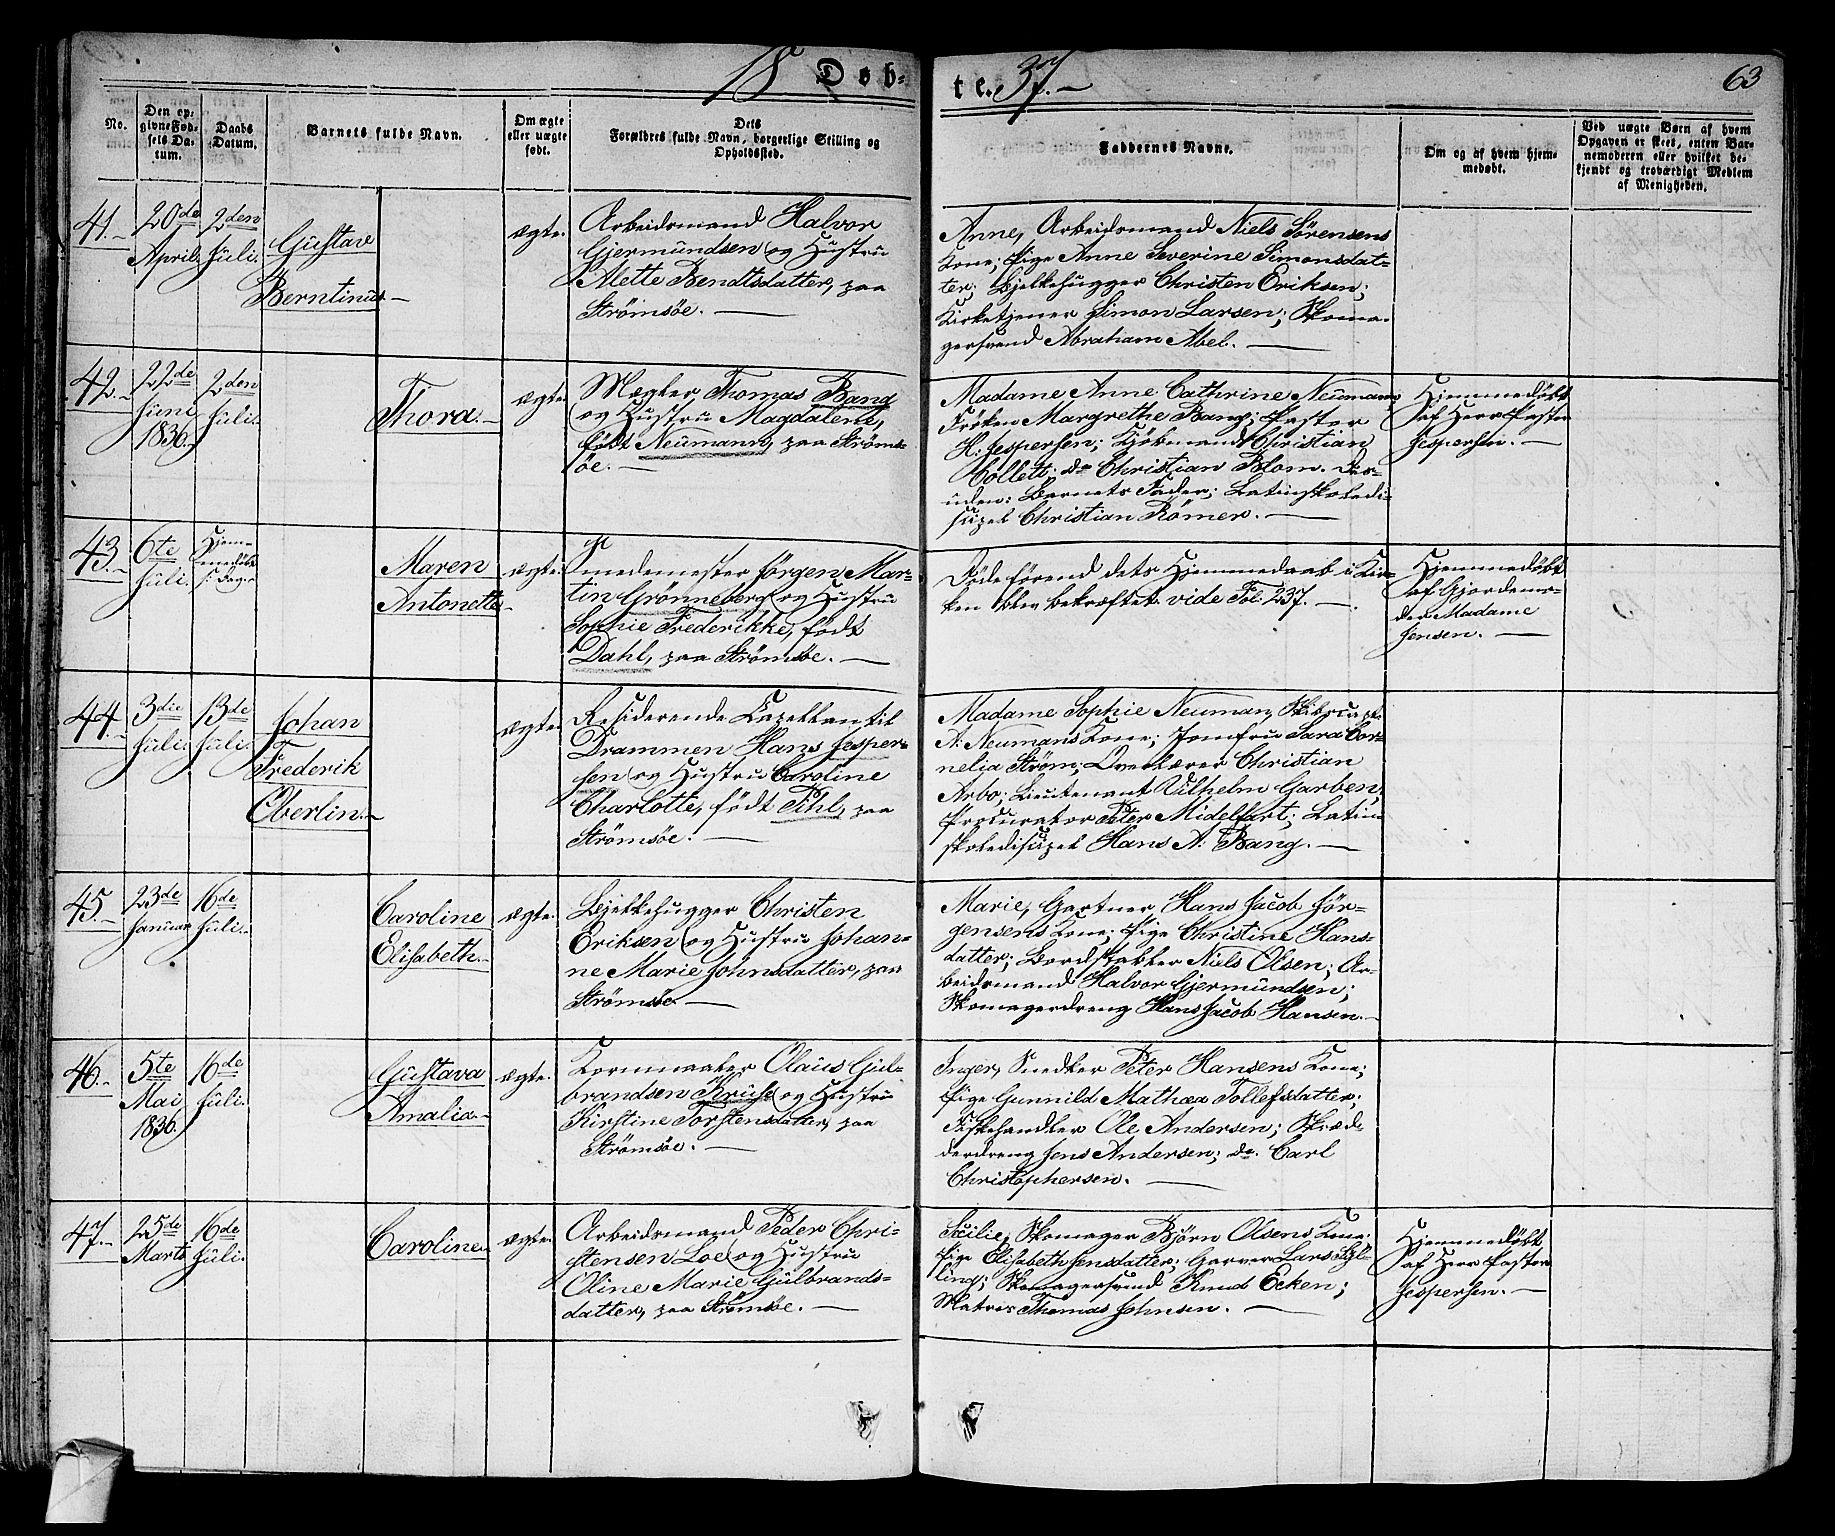 18 Døb-
te. 37.
63
No.
Den op-
givne Fød-
sels Da-
tum.
Daabs
Datum.
Barnets fulde Navn.
Om ægte
eller uægte
født.
Dets
Forældres fulde Navn, borgerlige Stilling og
Opholdssted.
Faddernes Navne.
Om og af hvem hjem-
medøbt.
Ved uægte Børn af hvem
Opgaven er skeet, enten Bar-
nemoderen eller hvilket be-
kjendt og troværdigt Medlem
af Menigheden.
41.
20de
April.
2den
Juli.
Gustave
Berntinus
ægte.
Arbeidsmand Halvor
Gjermundsen og Hustru
Alette Bendtsdatter, paa
Strömsöe.
Anne, Arbeidsmand Niels Sörensens
Kone; Pige Anne Severine Simonsdat-
ter; Bjelkehugger Christen Eriksen;
Kirketjener Simon Larsen; Skoma-
gersvend Abraham Abel.
42.
22de
Juni
1836.
2den
Juli.
Thora.
ægte.
Mægler Thomas Bang
og Hustru Magdalene,
født Neumann, paa Ström-
söe.
Madame Anne Cathrine Neumann;
Fröken Margrethe Bang; Pastor
H. Jespersen; Kjöbmand Christian
Collett; do Christian Blom. Des-
uden: Barnets Fader; Latinskoledi-
sipel Christian Römer.
Hjemmedöbt
af Herr Pastor
Jespersen.
43.
6te
Juli.
Hjem-
medöbt
s: Dag.
Maren
Antonette
ægte.
Smedemester Jörgen Mar-
tin Grönneberg og Hustru
Sophie Frederikke, født
Dahl, paa Strömsöe.
Döde förend dets Hjemmedaab i Kir-
ken blev bekræftet. vide Fol. 237.
Hjemmedöbt
af Gjordemo-
der Madame
Jensen.
44.
3die
Juli.
13de
Juli.
Johan
Frederik
Oberlin.
ægte.
Residerende Capellan til
Drammen Hans Jesper-
sen og Hustru Caroline
Charlotte, födt Pihl, paa
Strömsöe.
Madame Sophie Neuman, Skibscapt.
A: Neumans Kone; Jomfru Sara Cor-
nelia Ström; Overlærer Christian
Arbo; Lieutenant Vilhelm Garben,
Procurator Peter Midelfart; Latin-
skoledisipel Hans A: Bang.
45.
23de
Januar
16de
Juli.
Caroline
Elisabeth.
ægte.
Bjelkehugger Christen
Eriksen og Hustru Johan-
ne Marie Johnsdatter, paa
Strömsöe.
Marie, Gartner Hans Jacob Jör-
gensens Kone; Pige Christine Hans-
datter; Bordstabler Niels Olsen; Ar-
beidsmand Halvor Gjermundsen;
Skomagerdreng Hans Jacob Hansen.
46.
5te
Mai
1836.
16de
Juli.
Gustava
Amalia.
ægte.
Kornmaaler Olaus Gul-
brandsen Kruse og Hustru
Kirstine Torstensdatter, paa
Strömsöe.
Inger, Snedker Peter Hansens Kone;
Pige Gunnild Mathea Tollefsdatter;
Fiskehandler Ole Andersen; Skræd-
derdreng Jens Andersen; do. Carl
Christophersen.
47.
25de
Marts
16de
Juli.
Caroline.
ægte.
Arbeidsmand Peder Chri-
stensen Loe og Hustru
Oline Marie Gulbrands-
datter, paa Strömsöe.
Sicilie, Skomager Björn Olsens Kone;
Pige Elisabeth Jensdatter; Garver Lars Syl-
ling; Skomagersvend Knud Ecken;
Matros Thomas Johnsen.
Hjemmedöbt
af Herr Pastor
Jespersen.